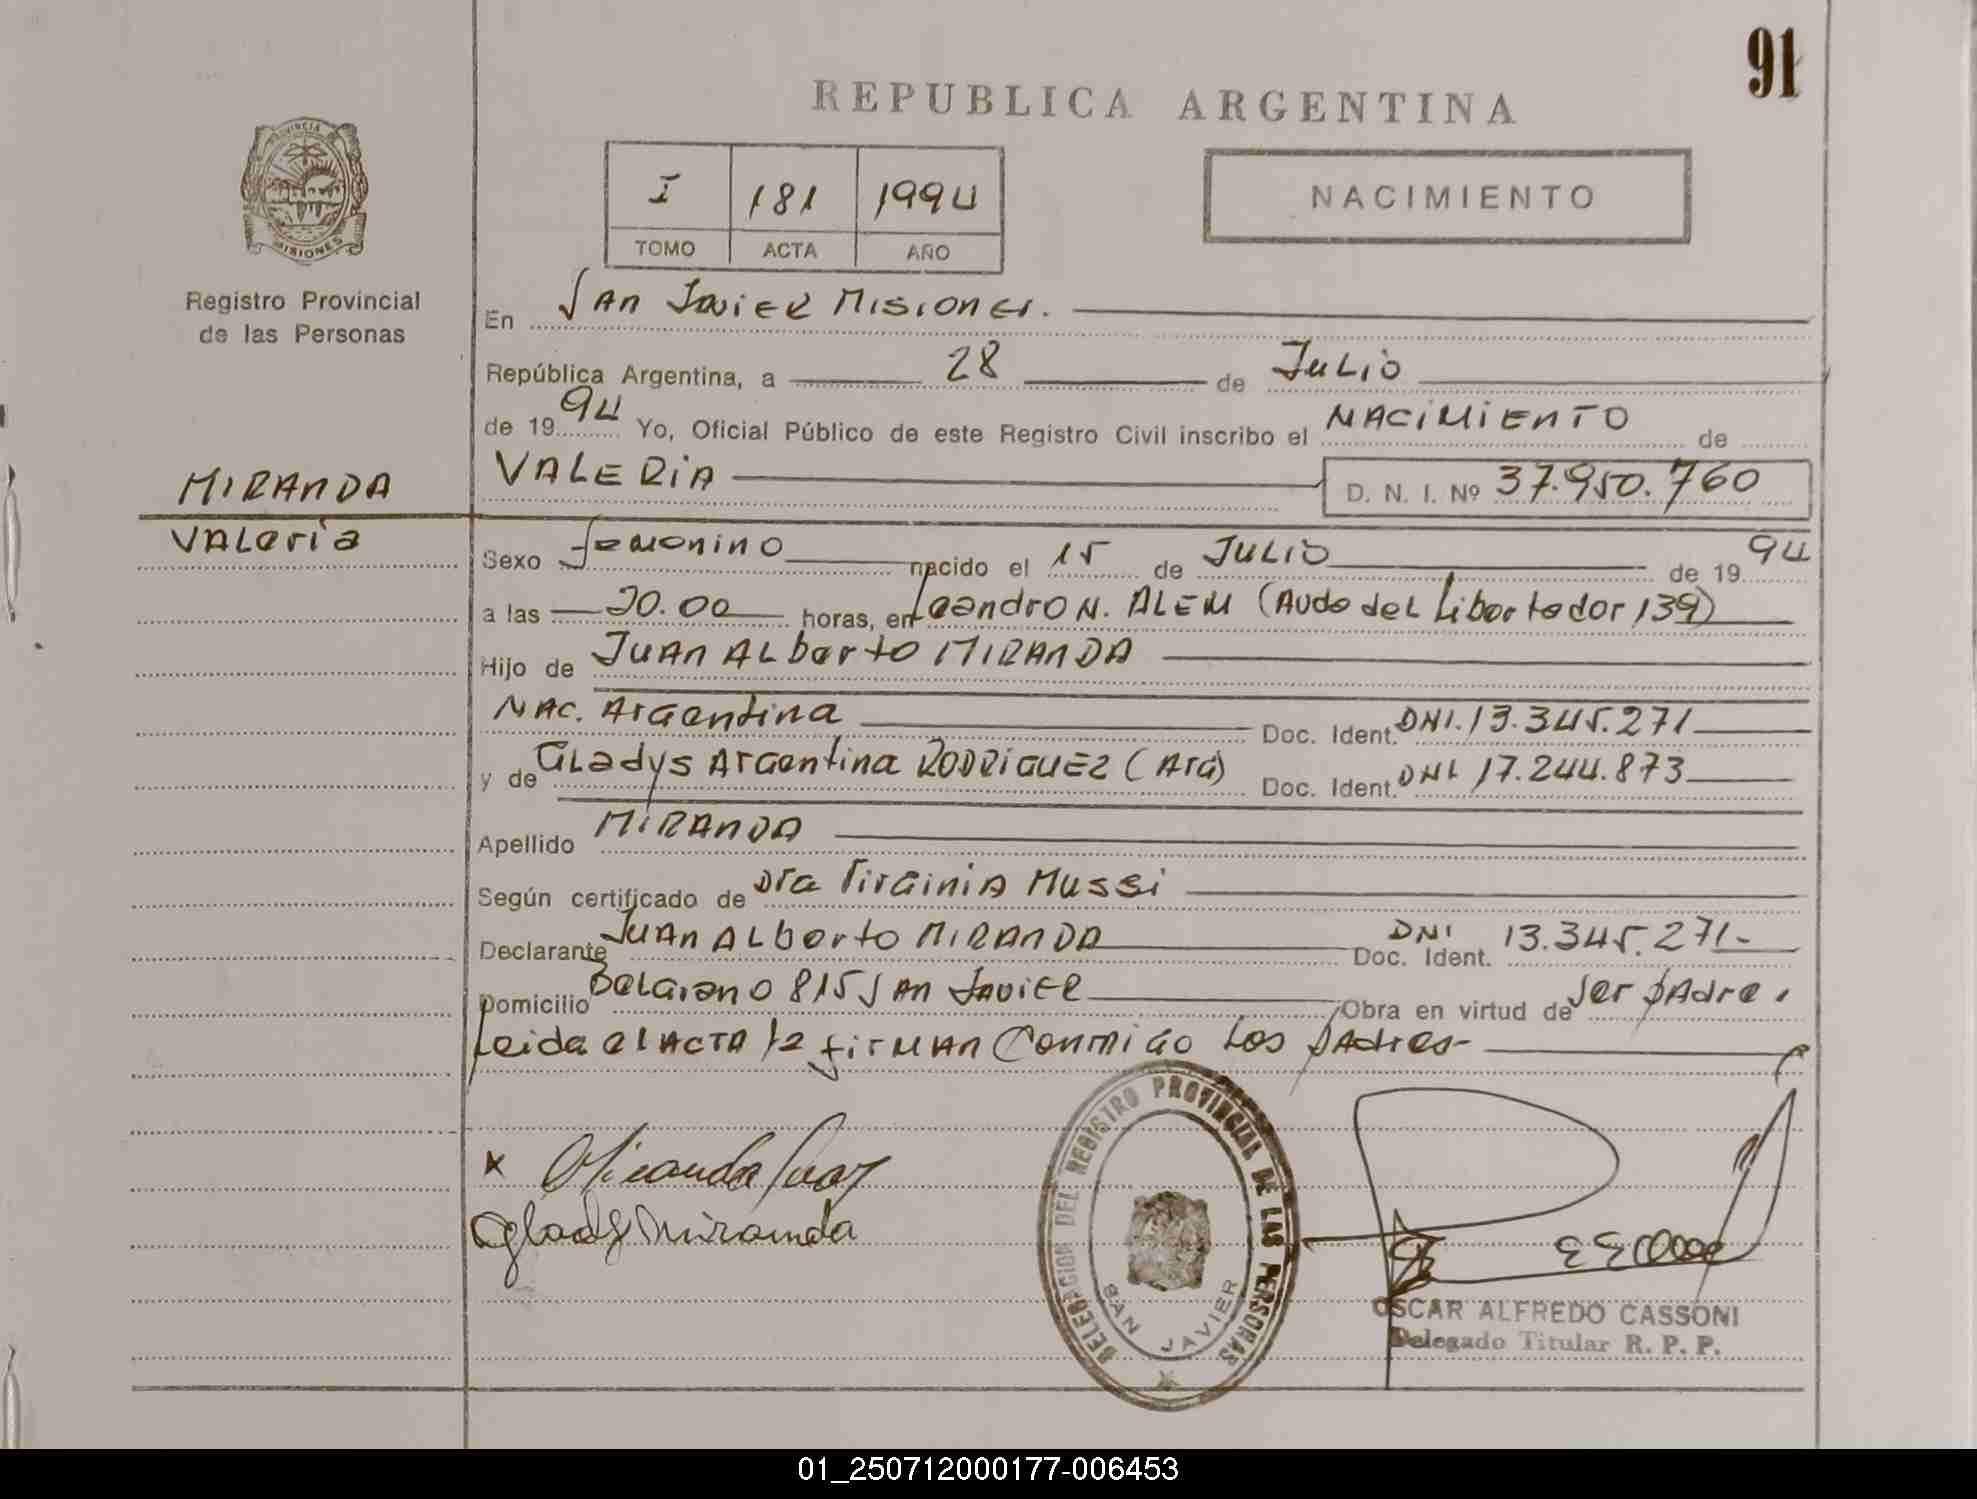 91
REPUBLICA ARGENTINA
I 181 1994
TOMO ACTA AÑO
NACIMIENTO
PROVINCIA
MISIONES
Registro Provincial
de las Personas
En San Javier Misiones.
República Argentina, a 28 de Julio
de 1994 Yo, Oficial Público de este Registro Civil inscribo el NACIMIENTO de
VALERIA D. N. I. Nº 37.950.760
MIRANDA
Valeria
Sexo femenino nacido el 15 de JULIO de 1994
a las 20.00 horas, en Leandro N. ALEM (Avda del Libertador 139)
Hijo de JUAN ALberto MIRANDA
NAC. Argentina Doc. Ident. DNI. 13.345.271
y de Gladys Argentina RODRIGUEZ (Arg) Doc. Ident. DNI 17.244.873
Apellido MIRANDA
Según certificado de Dra Virginia Mussi
Declarante Juan ALberto MIRANDA Doc. Ident. DNI 13.345.271-
Domicilio Belgrano 815 San Javier Obra en virtud de ser padre,
Leida el ACTA la firman Conmigo Los padres-
x Miranda Juan
Glady Miranda
DELEGACION DEL REGISTRO PROVINCIAL DE LAS PERSONAS
SAN JAVIER
OSCAR ALFREDO CASSONI
Delegado Titular R. P. P.
01_250712000177-006453